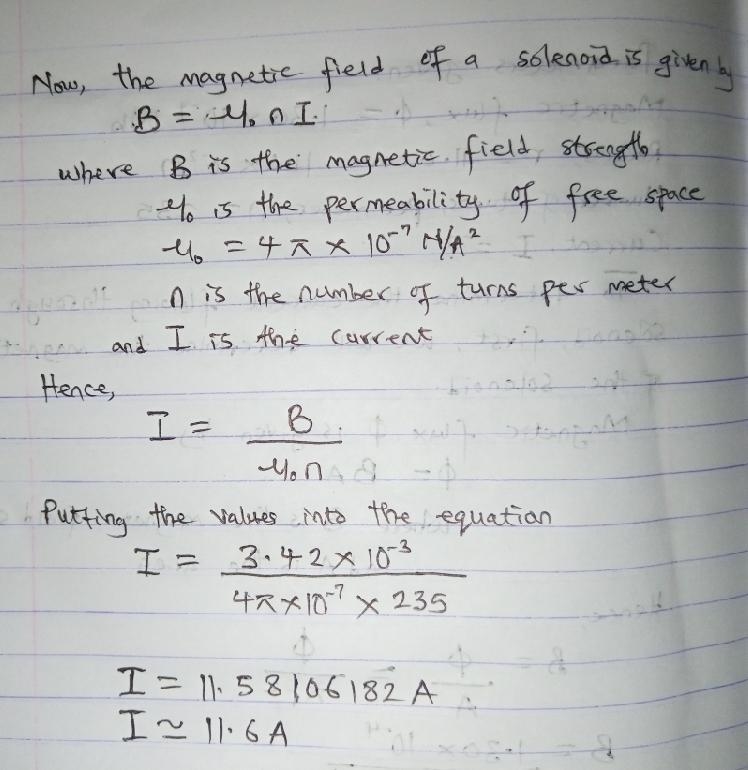 Now, the magnetic field of a solenoid is given by
B = μ₀ n I
where B is the magnetic field strength
μ₀ is the permeability of free space
μ₀ = 4π × 10⁻⁷ N/A²
n is the number of turns per meter
and I is the current
Hence,
I = B / μ₀n
Putting the values into the equation
I = 3.42 × 10⁻³ / 4π×10⁻⁷ × 235
I = 11.58106182 A
I ≃ 11.6 A